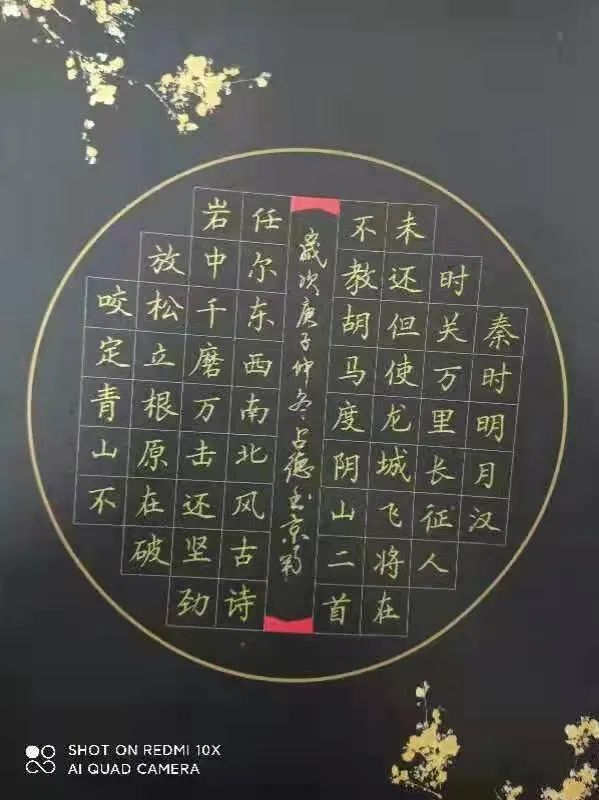 秦时明月汉
时关万里长征人
未还但使龙城飞将在
不教胡马度阴山二首
歲次庚子仲冬占德书京
咬定青山不
放松立根原在破
岩中千磨万击还坚劲
任尔东西南北风古诗
SHOT ON REDMI 10X
AI QUAD CAMERA